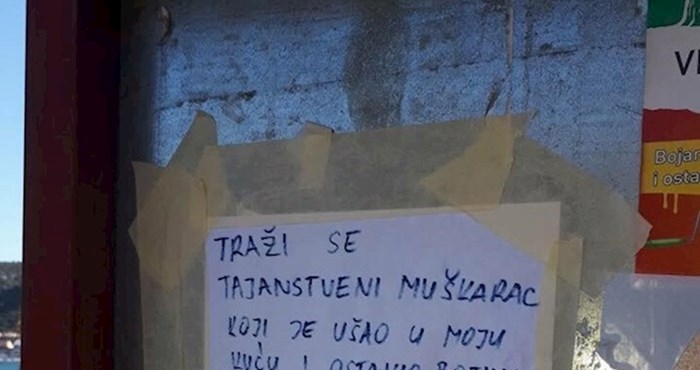 TRAŽI SE
TAJANSTVENI MUŠKARAC
KOJI JE UŠAO U MOJU
KUĆU I OSTAVIO
Bojan
i osta